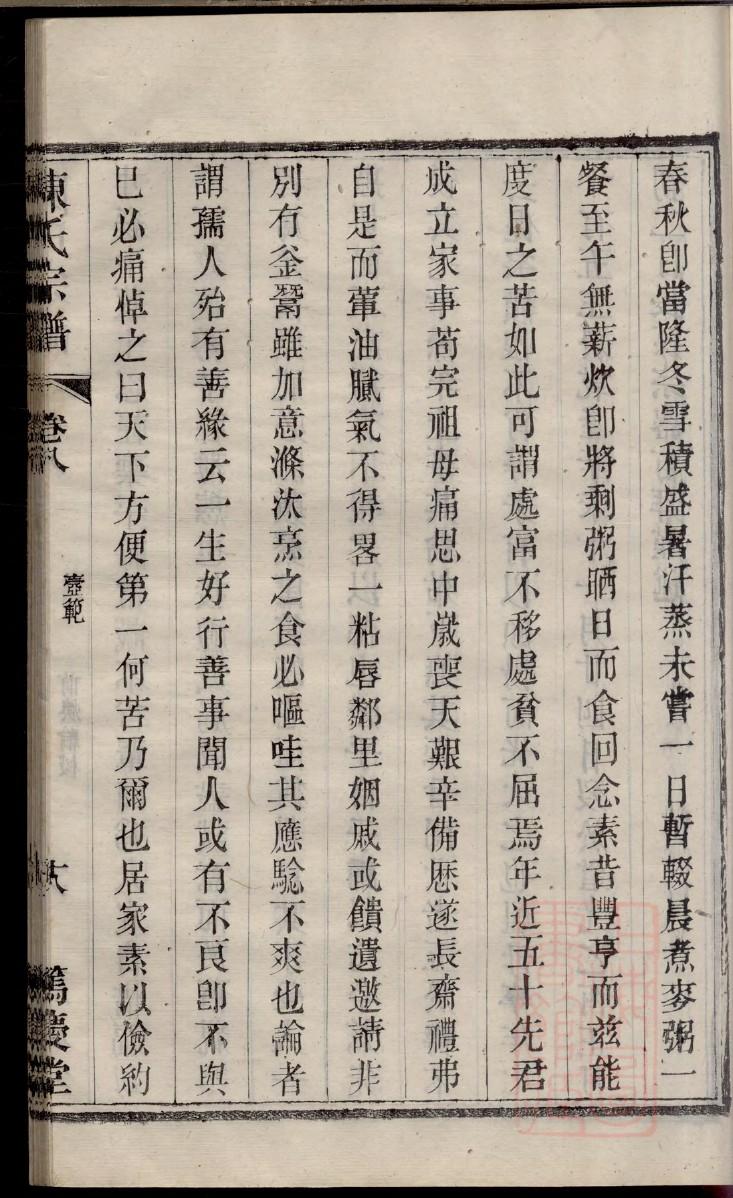 春秋卽當隆冬雪積盛暑汗蒸未嘗一日暫輟晨煮麥粥一
餐至午無薪炊卽將剩粥晒日而食回念素昔豐亨而兹能
度日之苦如此可謂處富不移處貧不屈焉年近五十先君
成立家事苟完祖母痛思中歲喪天艱辛備歴遂長齋禮弗
自是而葷油膩氣不得畧一粘唇鄰里姻戚或饋遺邀請非
別冇釜鬵雖加意滌汰烹之食必嘔哇其應騐不爽也論者
謂孺人殆有善緣云一生好行善事聞人或有不良卽不與
巳必痛悼之曰天下方便第一何苦乃爾也居家素以儉約
陳氏宗譜 卷八 壼範 十八 篤慶堂